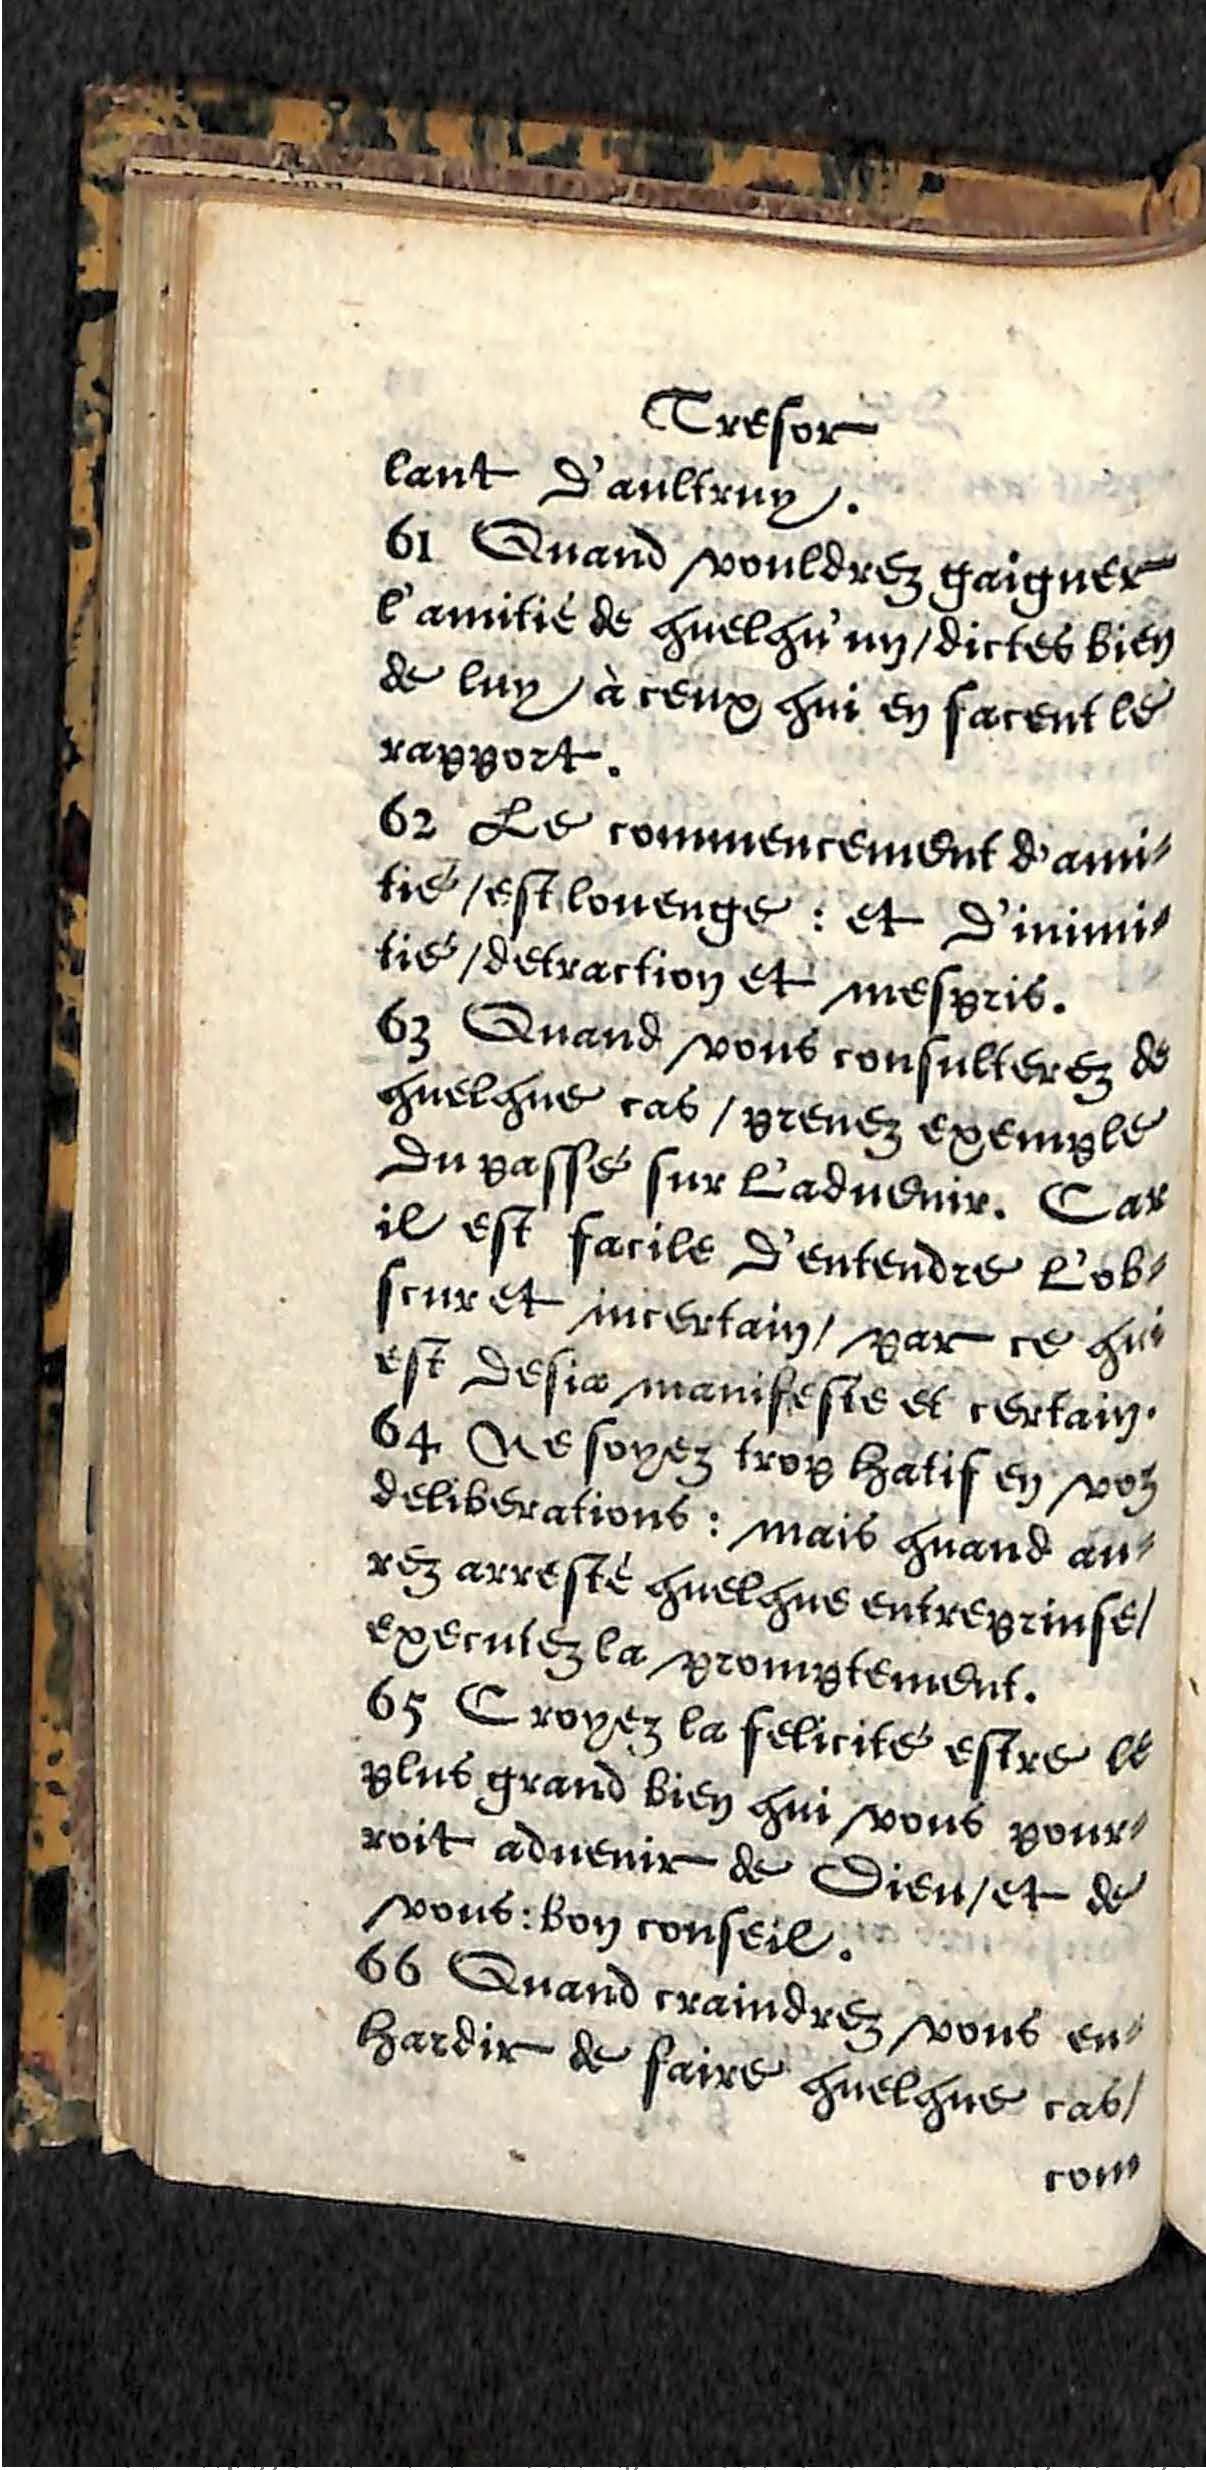 Tresor
lant d'aultruy.
61 Quand vouldrez gaigner
l'amitié de quelqu'un/dictes bien
de luy à ceux qui en facent le
rapport.
62 Le commencement d'ami-
tié/est louenge : et d'inimi-
tié/detraction et mespris.
63 Quand vous consulterez de
quelque cas/prenez exemple
du passé sur l'aduenir. Car
il est facile d'entendre l'ob-
scur et incertain/ par ce qui
est desia manifeste et certain.
64 Ne soyez trop hatif en voz
deliberations : mais quand au-
rez arresté quelque entreprinse/
executez la promptement.
65 Croyez la felicité estre le
plus grand bien qui vous pour-
roit aduenir de Dieu/et de
vous: bon conseil.
66 Quand craindrez vous en-
hardir de faire quelque cas/
com